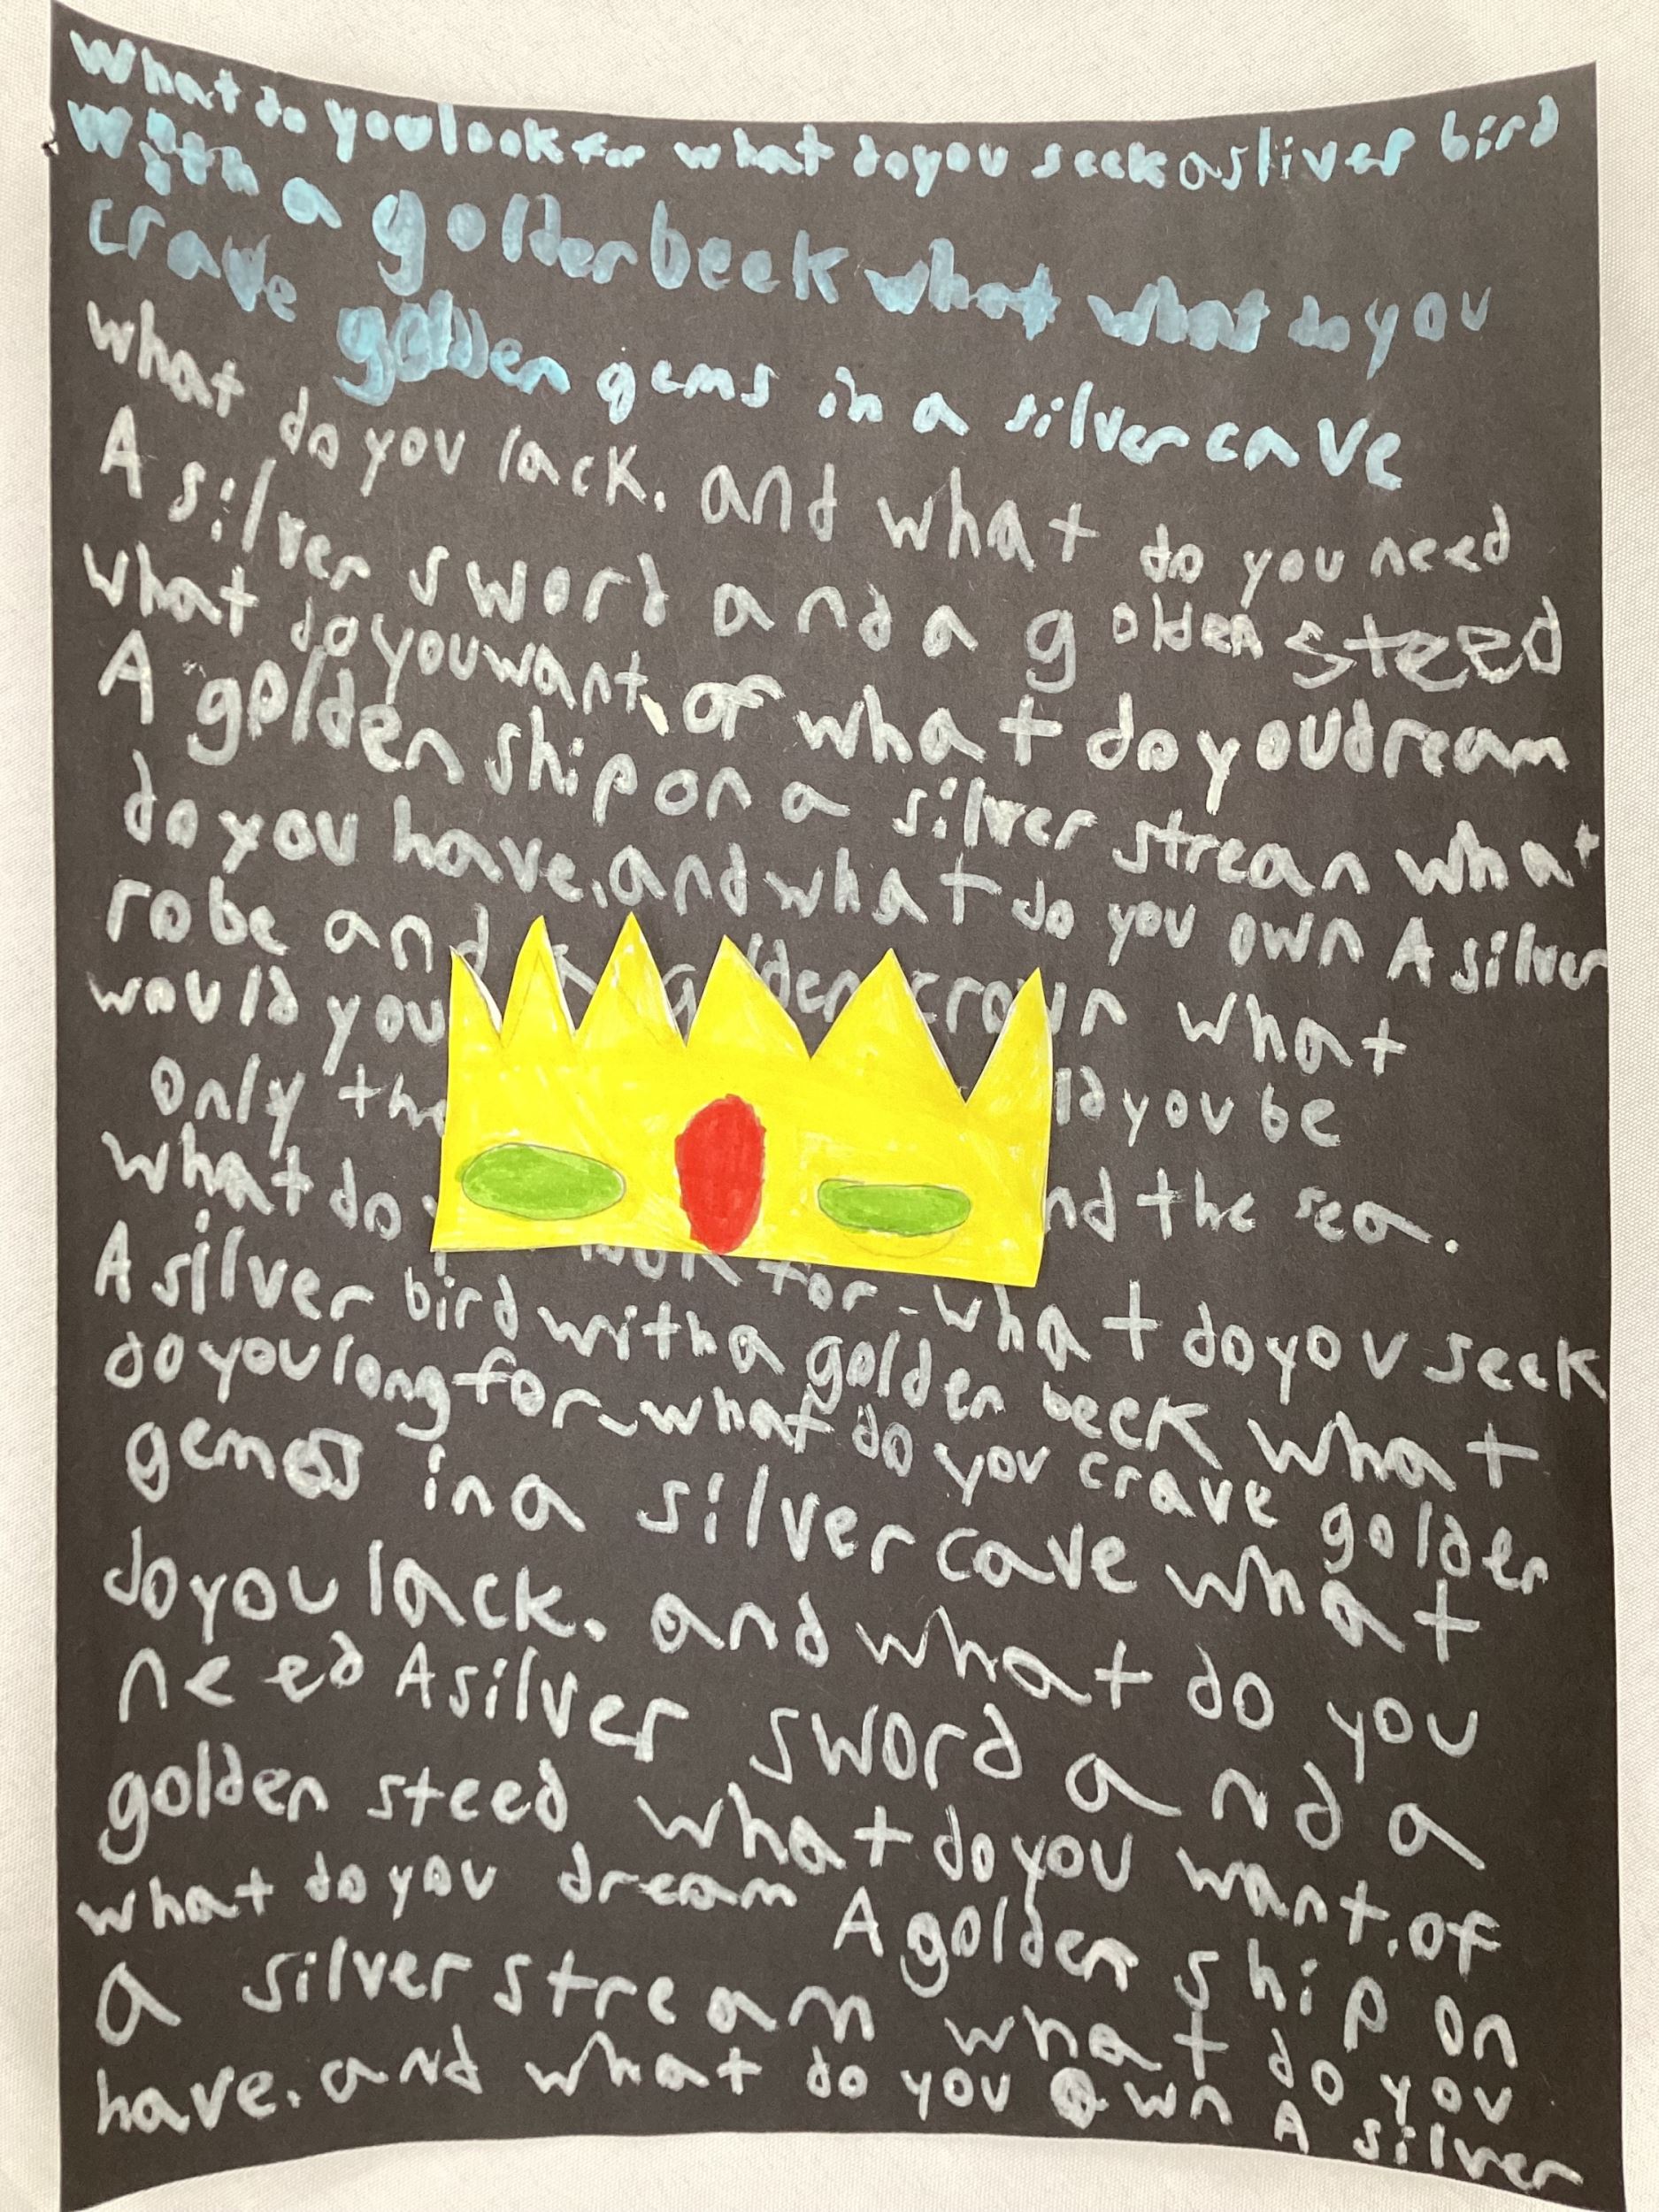 what do you look for what do you seek a sliver bird
with a golden beek what what do you
crave golden gems in a silver cave
what do you lack. and what do you need
A silver sword and a golden steed
what do you want. of what do you dream
A golden ship on a silver strean what
do you have. and what do you own A silver
robe and golden crown what
would you ld you be
only the nd the sea.
what do look for - what do you seek
A silver bird with a golden beek what
do you long for - what do you crave golden
gems in a silver cave what
do you lack. and what do you
need A silver sword and a
golden steed what do you want. of
what do you dream A golden ship on
a silver stream what do you
have. and what do you own A silver